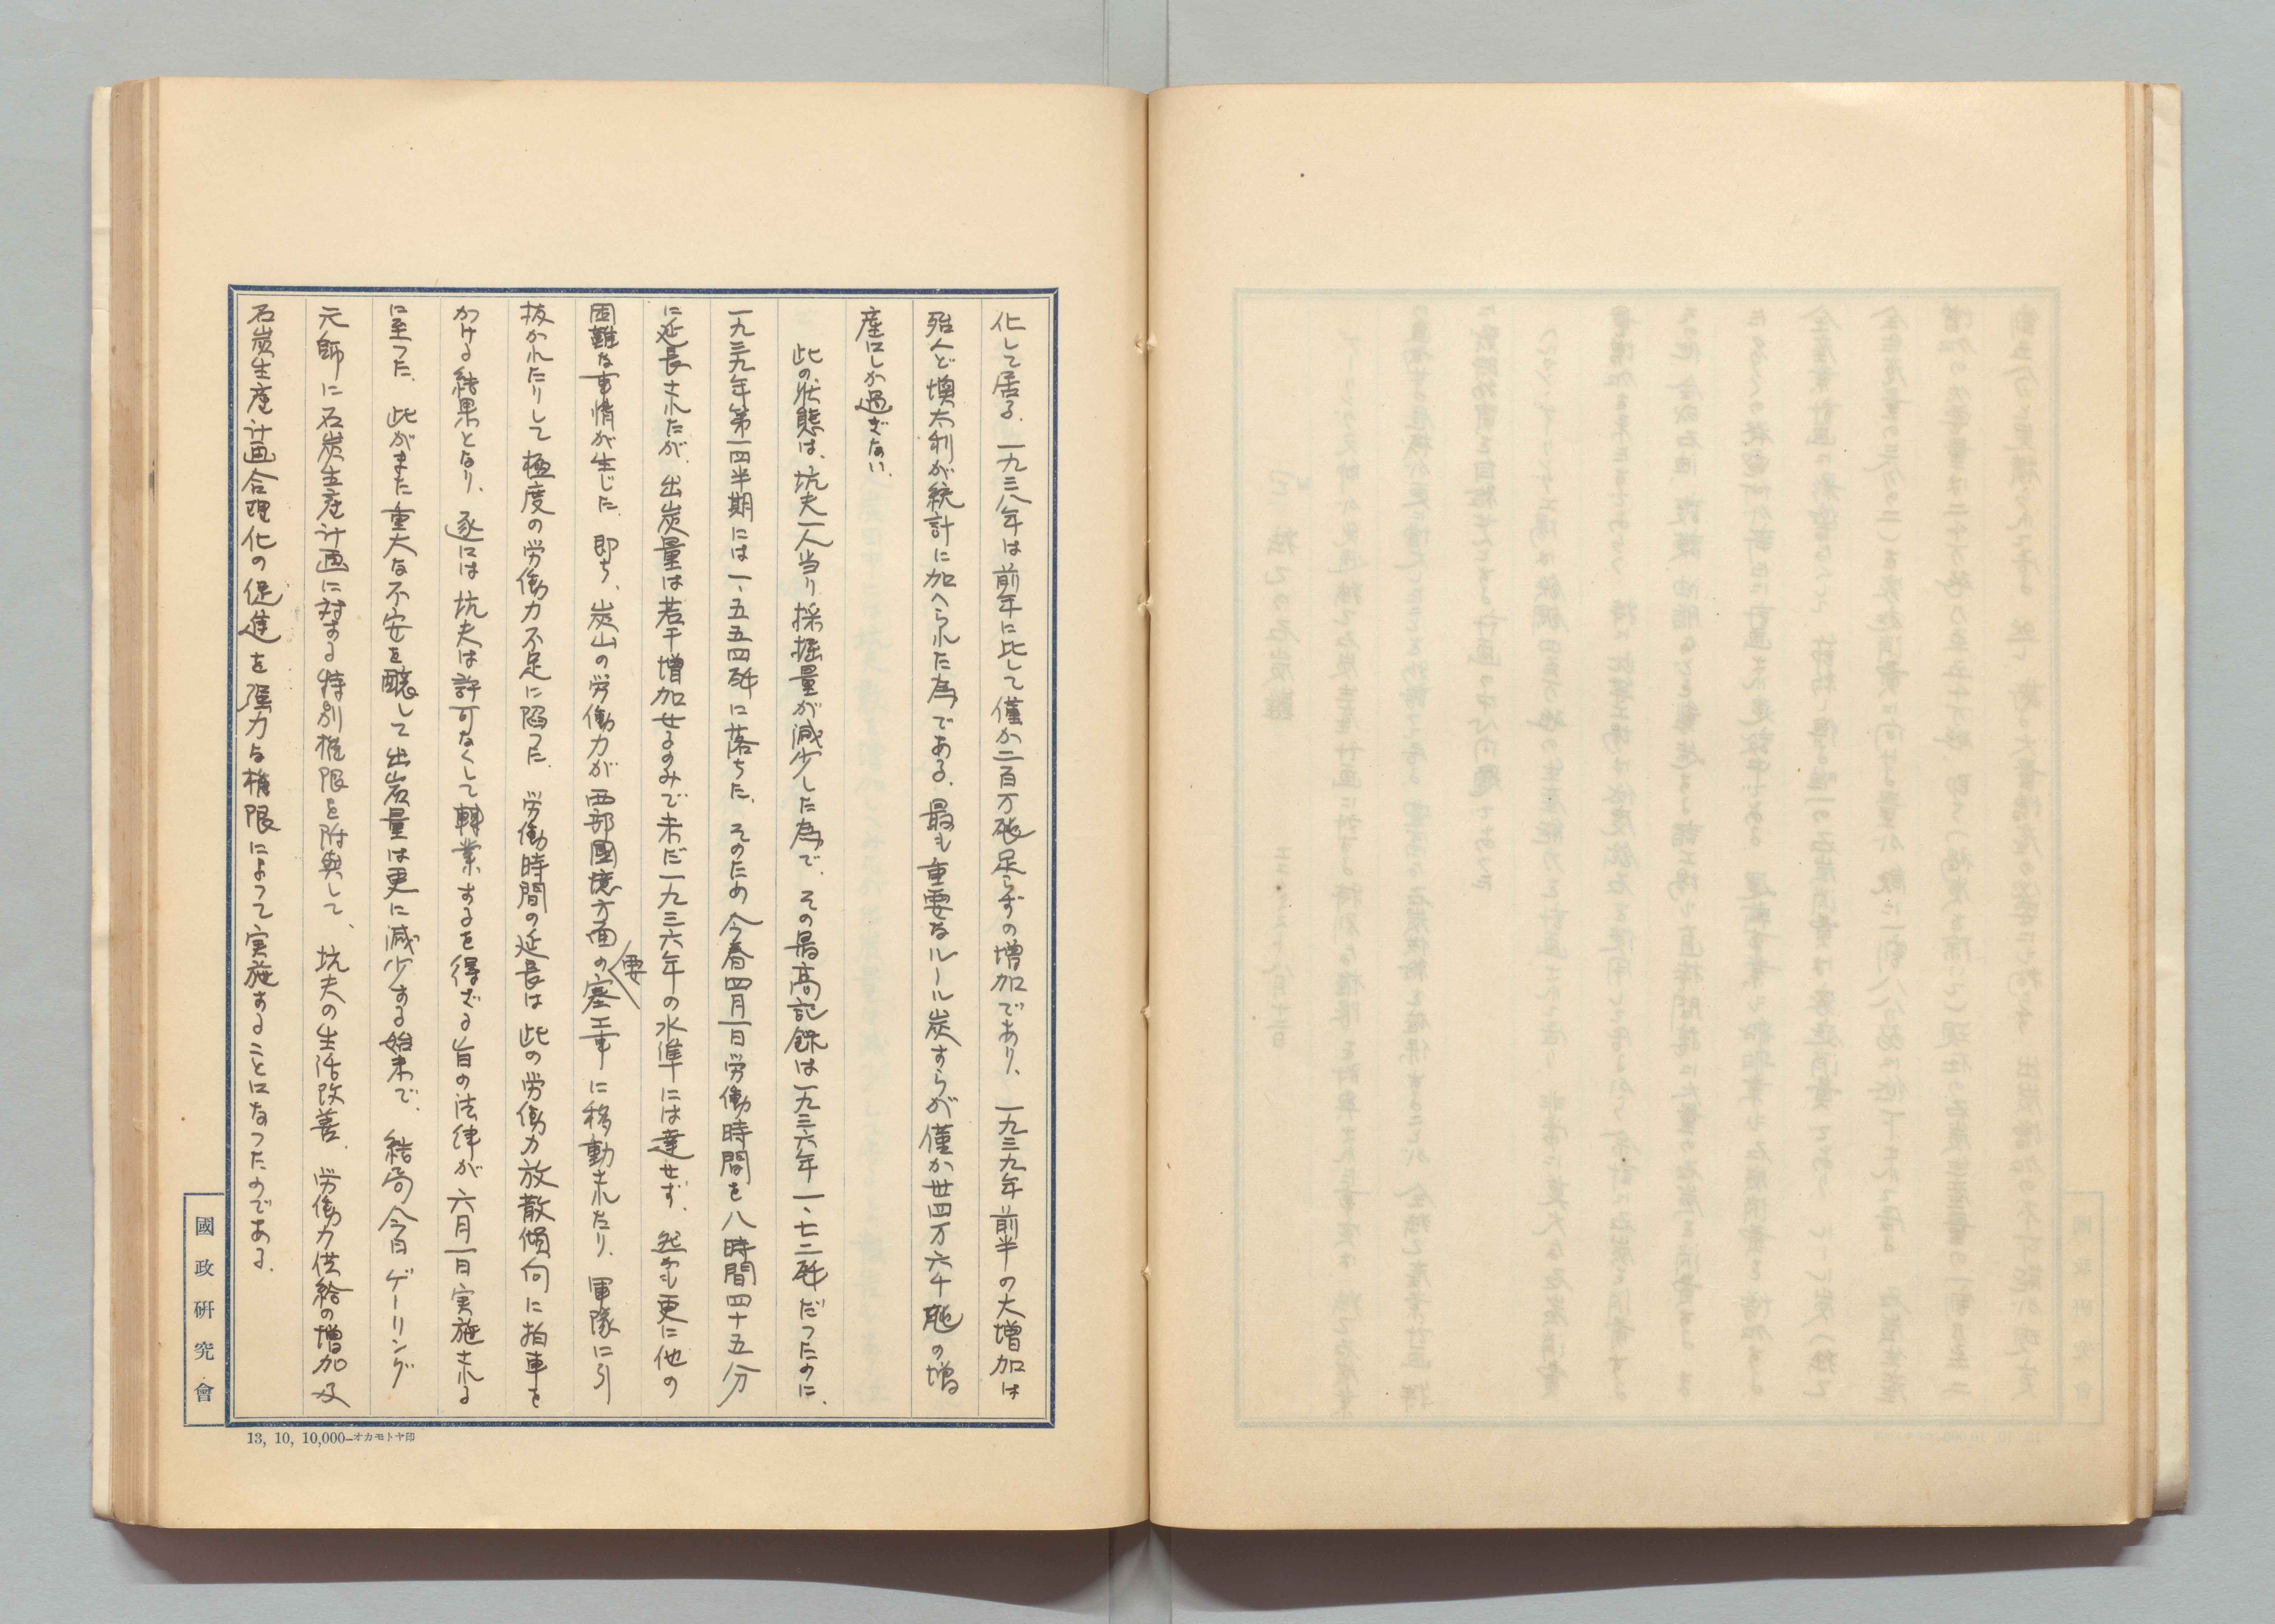 化して居る、一九三八年は前年に比して僅か二百万瓲足らずの増加であり、一九三九年前半の大増加は
殆んど墺太利が統計に加へられた為である、最も重要なルール炭すらが僅か卅四万六千瓲の増
産にしか過ぎない、
此の状態は、坑夫一人当り採掘量が減少した為で、その最高記録は一九三六年一、七二瓲だつたのに、
一九三九年第一四半期には一、五五四瓲に落ちた、そのため今春四月一日労働時間を八時間四十五分
に延長されたが、出炭量は若干増加せるのみで未だ一九三六年の水準には達せず、然かも更に他の
困難な事情が生じた、即ち、炭山の労働力が西部國境方面の要塞工事に移動されたり、軍隊に引
抜かれたりして極度の労働力不足に陥つた、労働時間の延長は此の労働力放散傾向に拍車を
かける結果となり、遂には坑夫は許可なくして轉業するを得ざる旨の法律が六月一日実施される
に至つた、此がまた重大な不安を醸して出炭量は更に減少する始末で、結局今日ゲーリング
元帥に石炭生産計画に対する特別権限を附與して、坑夫の生活改善、労働力供給の増加及
石炭生産計画合理化の促進を强力な権限によつて実施することになつたのである、
國政研究會
13, 10, 10,000—オカモトヤ印